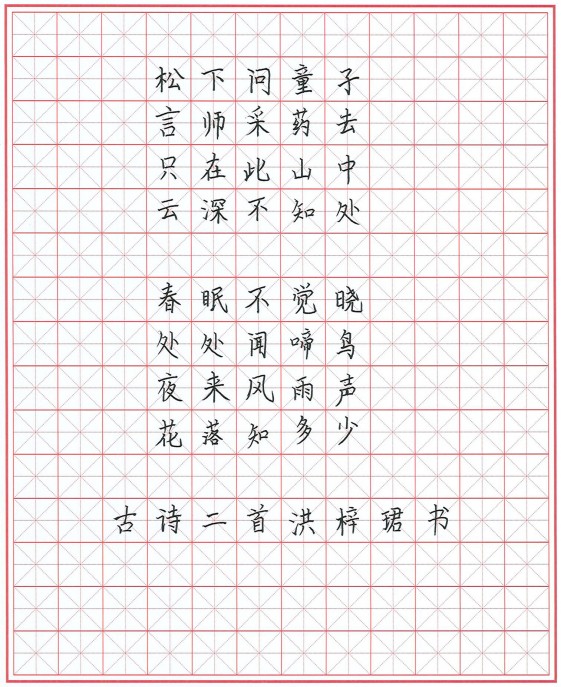 松下问童子
言师采药去
只在此山中
云深不知处
春眠不觉晓
处处闻啼鸟
夜来风雨声
花落知多少
古诗二首洪梓珺书